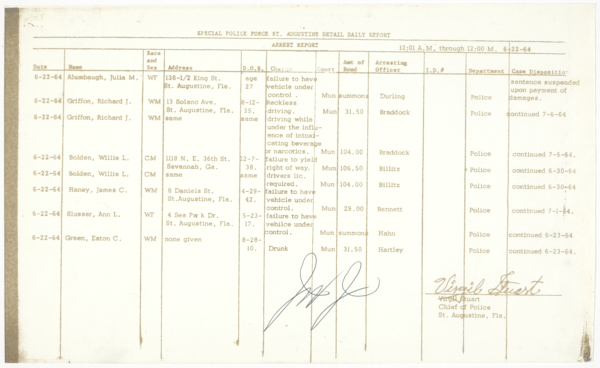 SPECIAL POLICE FORCE ST. AUGUSTINE DETAIL DAILY REPORT
ARREST REPORT 12:01 A.M. through 12:00 M. 6-22-64
Date Name Race and Sex Address D.O.B. Court Amt of Bond Arresting Officer I.D.# Department Case Disposition
6-22-64 Alumbaugh, Julia M. WF 136-1/2 King St. age failure to have sentence suspended
St. Augustine, Fla. 27 vehicle under upon payment of
control. Mun summons Durling Police damages.
6-22-64 Griffon, Richard J. WM 13 Solano Ave. 8-12- Reckless
St. Augustine, Fla. 35. driving. Mun 31.50 Braddock Police continued 7-6-64.
6-22-64 Griffon, Richard J. WM same same driving while
under the influ-
ence of intoxi-
cating beverage
or narcotics. Mun 104.00 Braddock Police continued 7-6-64.
6-22-64 Bolden, Willis L. CM 1218 N. E. 36th St. 12-7- failure to yield
Savannah, Ga. 38. right of way. Mun 106.50 Billitz Police continued 6-30-64
6-22-64 Bolden, Willis L. CM same same drivers lic.
required. Mun 104.00 Billitz Police continued 6-30-64
6-22-64 Haney, James C. WM 8 Daniels St. 4-29- failure to have
St. Augustine, Fla. 42. vehicle under
control. Mun 29.00 Bennett Police continued 7-1-64.
6-22-64 Slusser, Ann L. WF 4 Sea Park Dr. 5-23- failure to have
St. Augustine, Fla. 17. vehicle under
control. Mun summons Hahn Police continued 6-23-64.
6-22-64 Green, Eaton C. WM none given 8-28-
10. Drunk Mun 31.50 Hartley Police continued 6-23-64.
Virgil Stuart
Virgil Stuart
Chief of Police
St. Augustine, Fla.